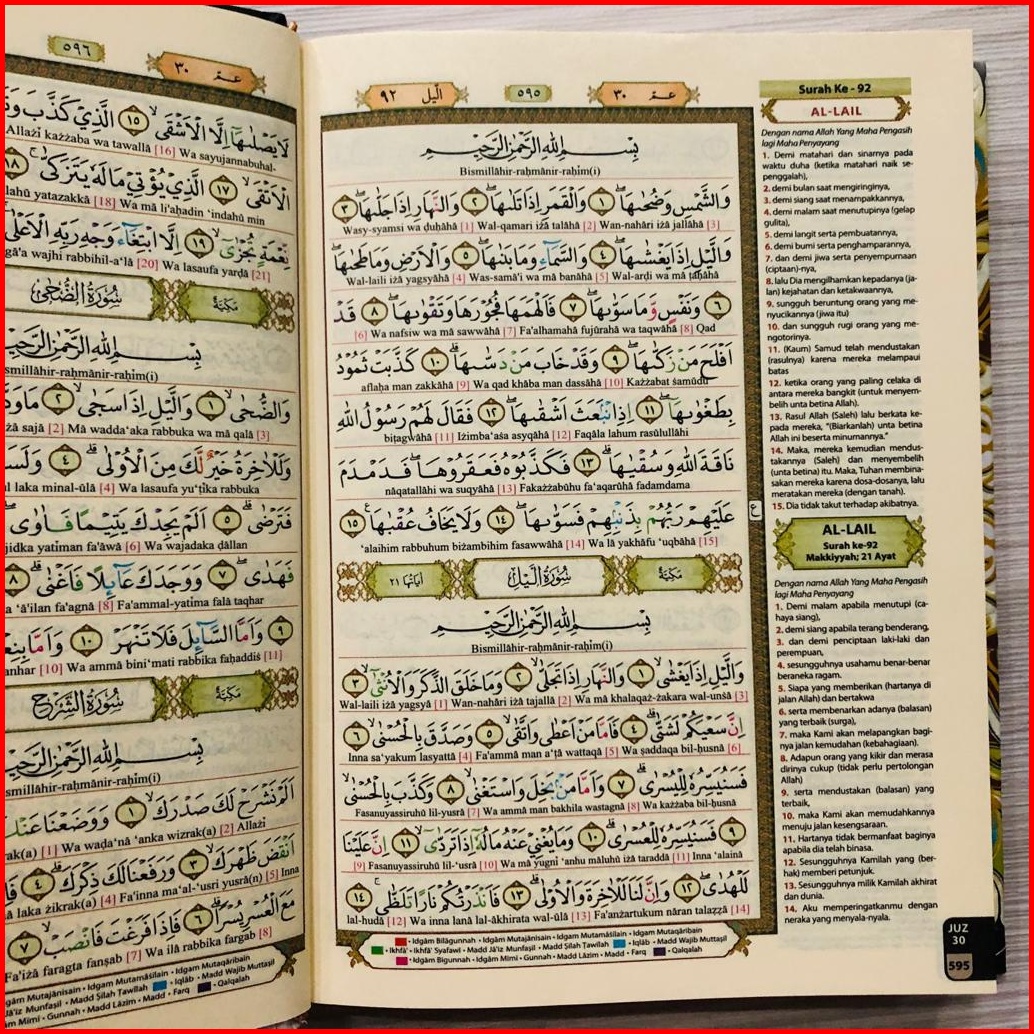 ٥٩٦
عمّ ٣٠
لَا يَصْلٰىهَآ اِلَّا الْاَشْقَىۙ ١٥ الَّذِيْ كَذَّبَ
Allażī każżaba wa tawallā [16] Wa sayujannabuhal-
الْاَتْقَىۙ ١٧ الَّذِيْ يُؤْتِيْ مَالَهٗ يَتَزَكّٰىۚ ١٨
yatazakkā [18] Wa mā li'aḥadin ‘indahū min
نِّعْمَةٍ تُجْزٰىٓۙ ١٩ اِلَّا ابْتِغَاۤءَ وَجْهِ رَبِّهِ الْاَعْلٰى
wajhi rabbihil-a‘lā [20] Wa lasaufa yarḍā [21]
سُوْرَةُ الضُّحٰى
مَكِّيَّةٌ
بِسْمِ اللّٰهِ الرَّحْمٰنِ الرَّحِيْمِ
smillāhir-raḥmānir-raḥīm(i)
وَالضُّحٰىۙ ١ وَالَّيْلِ اِذَا سَجٰىۙ ٢
sajā [2] Mā wadda‘aka rabbuka wa mā qalā [3]
وَلَلْاٰخِرَةُ خَيْرٌ لَّكَ مِنَ الْاُوْلٰىۗ ٤
laka minal-ūlā [4] Wa lasaufa yu‘ṭīka rabbuka
فَتَرْضٰىۗ ٥ اَلَمْ يَجِدْكَ يَتِيْمًا فَاٰوٰىۖ
yatīman fa'āwā [6] Wa wajadaka ḍāllan
فَهَدٰىۖ ٧ وَوَجَدَكَ عَاۤىِٕلًا فَاَغْنٰىۗ ٨
‘ā'ilan fa'agnā [8] Fa'ammal-yatīma falā taqhar
٩ وَاَمَّا السَّاۤىِٕلَ فَلَا تَنْهَرْ ١٠
[10] Wa ammā bini‘mati rabbika faḥaddiṡ [11]
سُوْرَةُ الشَّرْحِ
مَكِّيَّةٌ
بِسْمِ اللّٰهِ الرَّحْمٰنِ الرَّحِيْمِ
smillāhir-raḥmānir-raḥīm(i)
اَلَمْ نَشْرَحْ لَكَ صَدْرَكَۙ ١ وَوَضَعْنَا عَنْكَ
[1] Wa waḍa‘nā ‘anka wizrak(a) [2] Allażī
اَنْقَضَ ظَهْرَكَۙ ٣ وَرَفَعْنَا لَكَ ذِكْرَكَۗ ٤
laka żikrak(a) [4] Fa'inna ma‘al-‘usri yusrā(n) [5] Inna
مَعَ الْعُسْرِ يُسْرًاۗ ٦ فَاِذَا فَرَغْتَ فَانْصَبْۙ ٧
Fa'iżā faragta fanṣab [7] Wa ilā rabbika fargab [8]
Idgām Mutajānisain • Idgam Mutamāṡilain • Idgam Mutaqāribain
Jā'iz Munfaṣil • Madd Ṣilah Ṭawīlah • Iqlāb • Madd Wajib Muttaṣil
Mimi • Gunnah • Madd Lāzim • Madd • Farq • Qalqalah
الّيل ٩٢
٥٩٥
عمّ ٣٠
بِسْمِ اللّٰهِ الرَّحْمٰنِ الرَّحِيْمِ
Bismillāhir-raḥmānir-raḥīm(i)
وَالشَّمْسِ وَضُحٰىهَاۖ ١ وَالْقَمَرِ اِذَا تَلٰىهَاۖ ٢ وَالنَّهَارِ اِذَا جَلّٰىهَاۖ ٣
Wasy-syamsi wa ḍuḥāhā [1] Wal-qamari iżā talāhā [2] Wan-nahāri iżā jallāhā [3]
وَالَّيْلِ اِذَا يَغْشٰىهَاۖ ٤ وَالسَّمَاۤءِ وَمَا بَنٰىهَاۖ ٥ وَالْاَرْضِ وَمَا طَحٰىهَاۖ
Wal-laili iżā yagsyāhā [4] Was-samā'i wa mā banāhā [5] Wal-arḍi wa mā ṭaḥāhā
٦ وَنَفْسٍ وَّمَا سَوّٰىهَاۖ ٧ فَاَلْهَمَهَا فُجُوْرَهَا وَتَقْوٰىهَاۖ ٨ قَدْ
[6] Wa nafsiw wa mā sawwāhā [7] Fa'alhamahā fujūrahā wa taqwāhā [8] Qad
اَفْلَحَ مَنْ زَكّٰىهَاۖ ٩ وَقَدْ خَابَ مَنْ دَسّٰىهَاۗ ١٠ كَذَّبَتْ ثَمُوْدُ
aflaḥa man zakkāhā [9] Wa qad khāba man dassāhā [10] Każżabat ṡamūdu
بِطَغْوٰىهَآۖ ١١ اِذِ انْۢبَعَثَ اَشْقٰىهَاۖ ١٢ فَقَالَ لَهُمْ رَسُوْلُ اللّٰهِ
biṭagwāhā [11] Iżimba‘aṡa asyqāhā [12] Faqāla lahum rasūlullāhi
نَاقَةَ اللّٰهِ وَسُقْيٰهَاۗ ١٣ فَكَذَّبُوْهُ فَعَقَرُوْهَاۖ فَدَمْدَمَ
nāqatallāhi wa suqyāhā [13] Fakażżabūhu fa‘aqarūhā fadamdama
عَلَيْهِمْ رَبُّهُمْ بِذَنْۢبِهِمْ فَسَوّٰىهَاۖ ١٤ وَلَا يَخَافُ عُقْبٰهَاࣖ ١٥
‘alaihim rabbuhum biżambihim fasawwāhā [14] Wa lā yakhāfu ‘uqbāhā [15]
ع
مَكِّيَّةٌ
سُوْرَةُ الَّيْلِ
اٰيَاتُهَا ٢١
بِسْمِ اللّٰهِ الرَّحْمٰنِ الرَّحِيْمِ
Bismillāhir-raḥmānir-raḥīm(i)
وَالَّيْلِ اِذَا يَغْشٰىۙ ١ وَالنَّهَارِ اِذَا تَجَلّٰىۙ ٢ وَمَا خَلَقَ الذَّكَرَ وَالْاُنْثٰىٓۙ ٣
Wal-laili iżā yagsyā [1] Wan-nahāri iżā tajallā [2] Wa mā khalaqaż-żakara wal-unṡā [3]
اِنَّ سَعْيَكُمْ لَشَتّٰىۗ ٤ فَاَمَّا مَنْ اَعْطٰى وَاتَّقٰىۙ ٥ وَصَدَّقَ بِالْحُسْنٰىۙ ٦
Inna sa‘yakum lasyattā [4] Fa'ammā man a‘ṭā wattaqā [5] Wa ṣaddaqa bil-ḥusnā [6]
فَسَنُيَسِّرُهٗ لِلْيُسْرٰىۗ ٧ وَاَمَّا مَنْۢ بَخِلَ وَاسْتَغْنٰىۙ ٨ وَكَذَّبَ بِالْحُسْنٰىۙ
Fasanuyassiruhū lil-yusrā [7] Wa ammā man bakhila wastagnā [8] Wa każżaba bil-ḥusnā
٩ فَسَنُيَسِّرُهٗ لِلْعُسْرٰىۗ ١٠ وَمَا يُغْنِيْ عَنْهُ مَالُهٗٓ اِذَا تَرَدّٰىٓۙ ١١ اِنَّ عَلَيْنَا
[9] Fasanuyassiruhū lil-‘usrā [10] Wa mā yugni ‘anhu māluhū iżā taraddā [11] Inna ‘alainā
لَلْهُدٰىۖ ١٢ وَاِنَّ لَنَا لَلْاٰخِرَةَ وَالْاُوْلٰىۗ ١٣ فَاَنْذَرْتُكُمْ نَارًا تَلَظّٰىۚ ١٤
lal-hudā [12] Wa inna lanā lal-ākhirata wal-ūlā [13] Fa'anżartukum nāran talaẓẓā [14]
Idgām Bilāgunnah • Idgām Mutajānisain • Idgām Mutamāṡilain • Idgām Mutaqāribain
Ikhfā' • Ikhfā' Syafawi • Madd Jā'iz Munfaṣil • Madd Ṣilah Ṭawīlah • Iqlāb • Madd Wajib Muttaṣil
Idgām Bigunnah • Idgām Mimi • Gunnah • Madd Lāzim • Madd • Farq • Qalqalah
Surah Ke - 92
AL-LAIL
Dengan nama Allah Yang Maha Pengasih
lagi Maha Penyayang
1. Demi matahari dan sinarnya pada
waktu duha (ketika matahari naik se-
penggalah),
2. demi bulan saat mengiringinya,
3. demi siang saat menampakkannya,
4. demi malam saat menutupinya (gelap
gulita),
5. demi langit serta pembuatannya,
6. demi bumi serta penghamparannya,
7. dan demi jiwa serta penyempurnaan
(ciptaan)-nya,
8. lalu Dia mengilhamkan kepadanya (ja-
lan) kejahatan dan ketakwaannya,
9. sungguh beruntung orang yang me-
nyucikannya (jiwa itu)
10. dan sungguh rugi orang yang me-
ngotorinya.
11. (Kaum) Samud telah mendustakan
(rasulnya) karena mereka melampaui
batas
12. ketika orang yang paling celaka di
antara mereka bangkit (untuk menyem-
belih unta betina Allah).
13. Rasul Allah (Saleh) lalu berkata ke-
pada mereka, "(Biarkanlah) unta betina
Allah ini beserta minumannya."
14. Maka, mereka kemudian mendus-
takannya (Saleh) dan menyembelih
(unta betina) itu. Maka, Tuhan membina-
sakan mereka karena dosa-dosanya, lalu
meratakan mereka (dengan tanah).
15. Dia tidak takut terhadap akibatnya.
AL-LAIL
Surah ke-92
Makkiyyah; 21 Ayat
Dengan nama Allah Yang Maha Pengasih
lagi Maha Penyayang
1. Demi malam apabila menutupi (ca-
haya siang),
2. demi siang apabila terang benderang,
3. dan demi penciptaan laki-laki dan
perempuan,
4. sesungguhnya usahamu benar-benar
beraneka ragam.
5. Siapa yang memberikan (hartanya di
jalan Allah) dan bertakwa
6. serta membenarkan adanya (balasan)
yang terbaik (surga),
7. maka Kami akan melapangkan bagi-
nya jalan kemudahan (kebahagiaan).
8. Adapun orang yang kikir dan merasa
dirinya cukup (tidak perlu pertolongan
Allah)
9. serta mendustakan (balasan) yang
terbaik,
10. maka Kami akan memudahkannya
menuju jalan kesengsaraan.
11. Hartanya tidak bermanfaat baginya
apabila dia telah binasa.
12. Sesungguhnya Kamilah yang (ber-
hak) memberi petunjuk.
13. Sesungguhnya milik Kamilah akhirat
dan dunia.
14. Aku memperingatkanmu dengan
neraka yang menyala-nyala.
JUZ
30
595